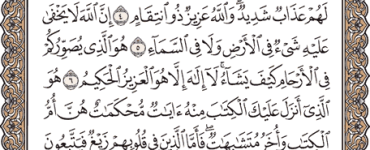 لَهُمْ عَذَابٌ شَدِيدٌ ۗ وَٱللَّهُ عَزِيزٌ ذُو ٱنتِقَامٍ ٤ إِنَّ ٱللَّهَ لَا يَخْفَىٰ
عَلَيْهِ شَىْءٌ فِى ٱلْأَرْضِ وَلَا فِى ٱلسَّمَآءِ ٥ هُوَ ٱلَّذِى يُصَوِّرُكُمْ
فِى ٱلْأَرْحَامِ كَيْفَ يَشَآءُ ۚ لَآ إِلَٰهَ إِلَّا هُوَ ٱلْعَزِيزُ ٱلْحَكِيمُ ٦ هُوَ
ٱلَّذِىٓ أَنزَلَ عَلَيْكَ ٱلْكِتَٰبَ مِنْهُ ءَايَٰتٌ مُّحْكَمَٰتٌ هُنَّ أُمُّ
ٱلْكِتَٰبِ وَأُخَرُ مُتَشَٰبِهَٰتٌ ۖ فَأَمَّا ٱلَّذِينَ فِى قُلُوبِهِمْ زَيْغٌ فَيَتَّبِعُونَ